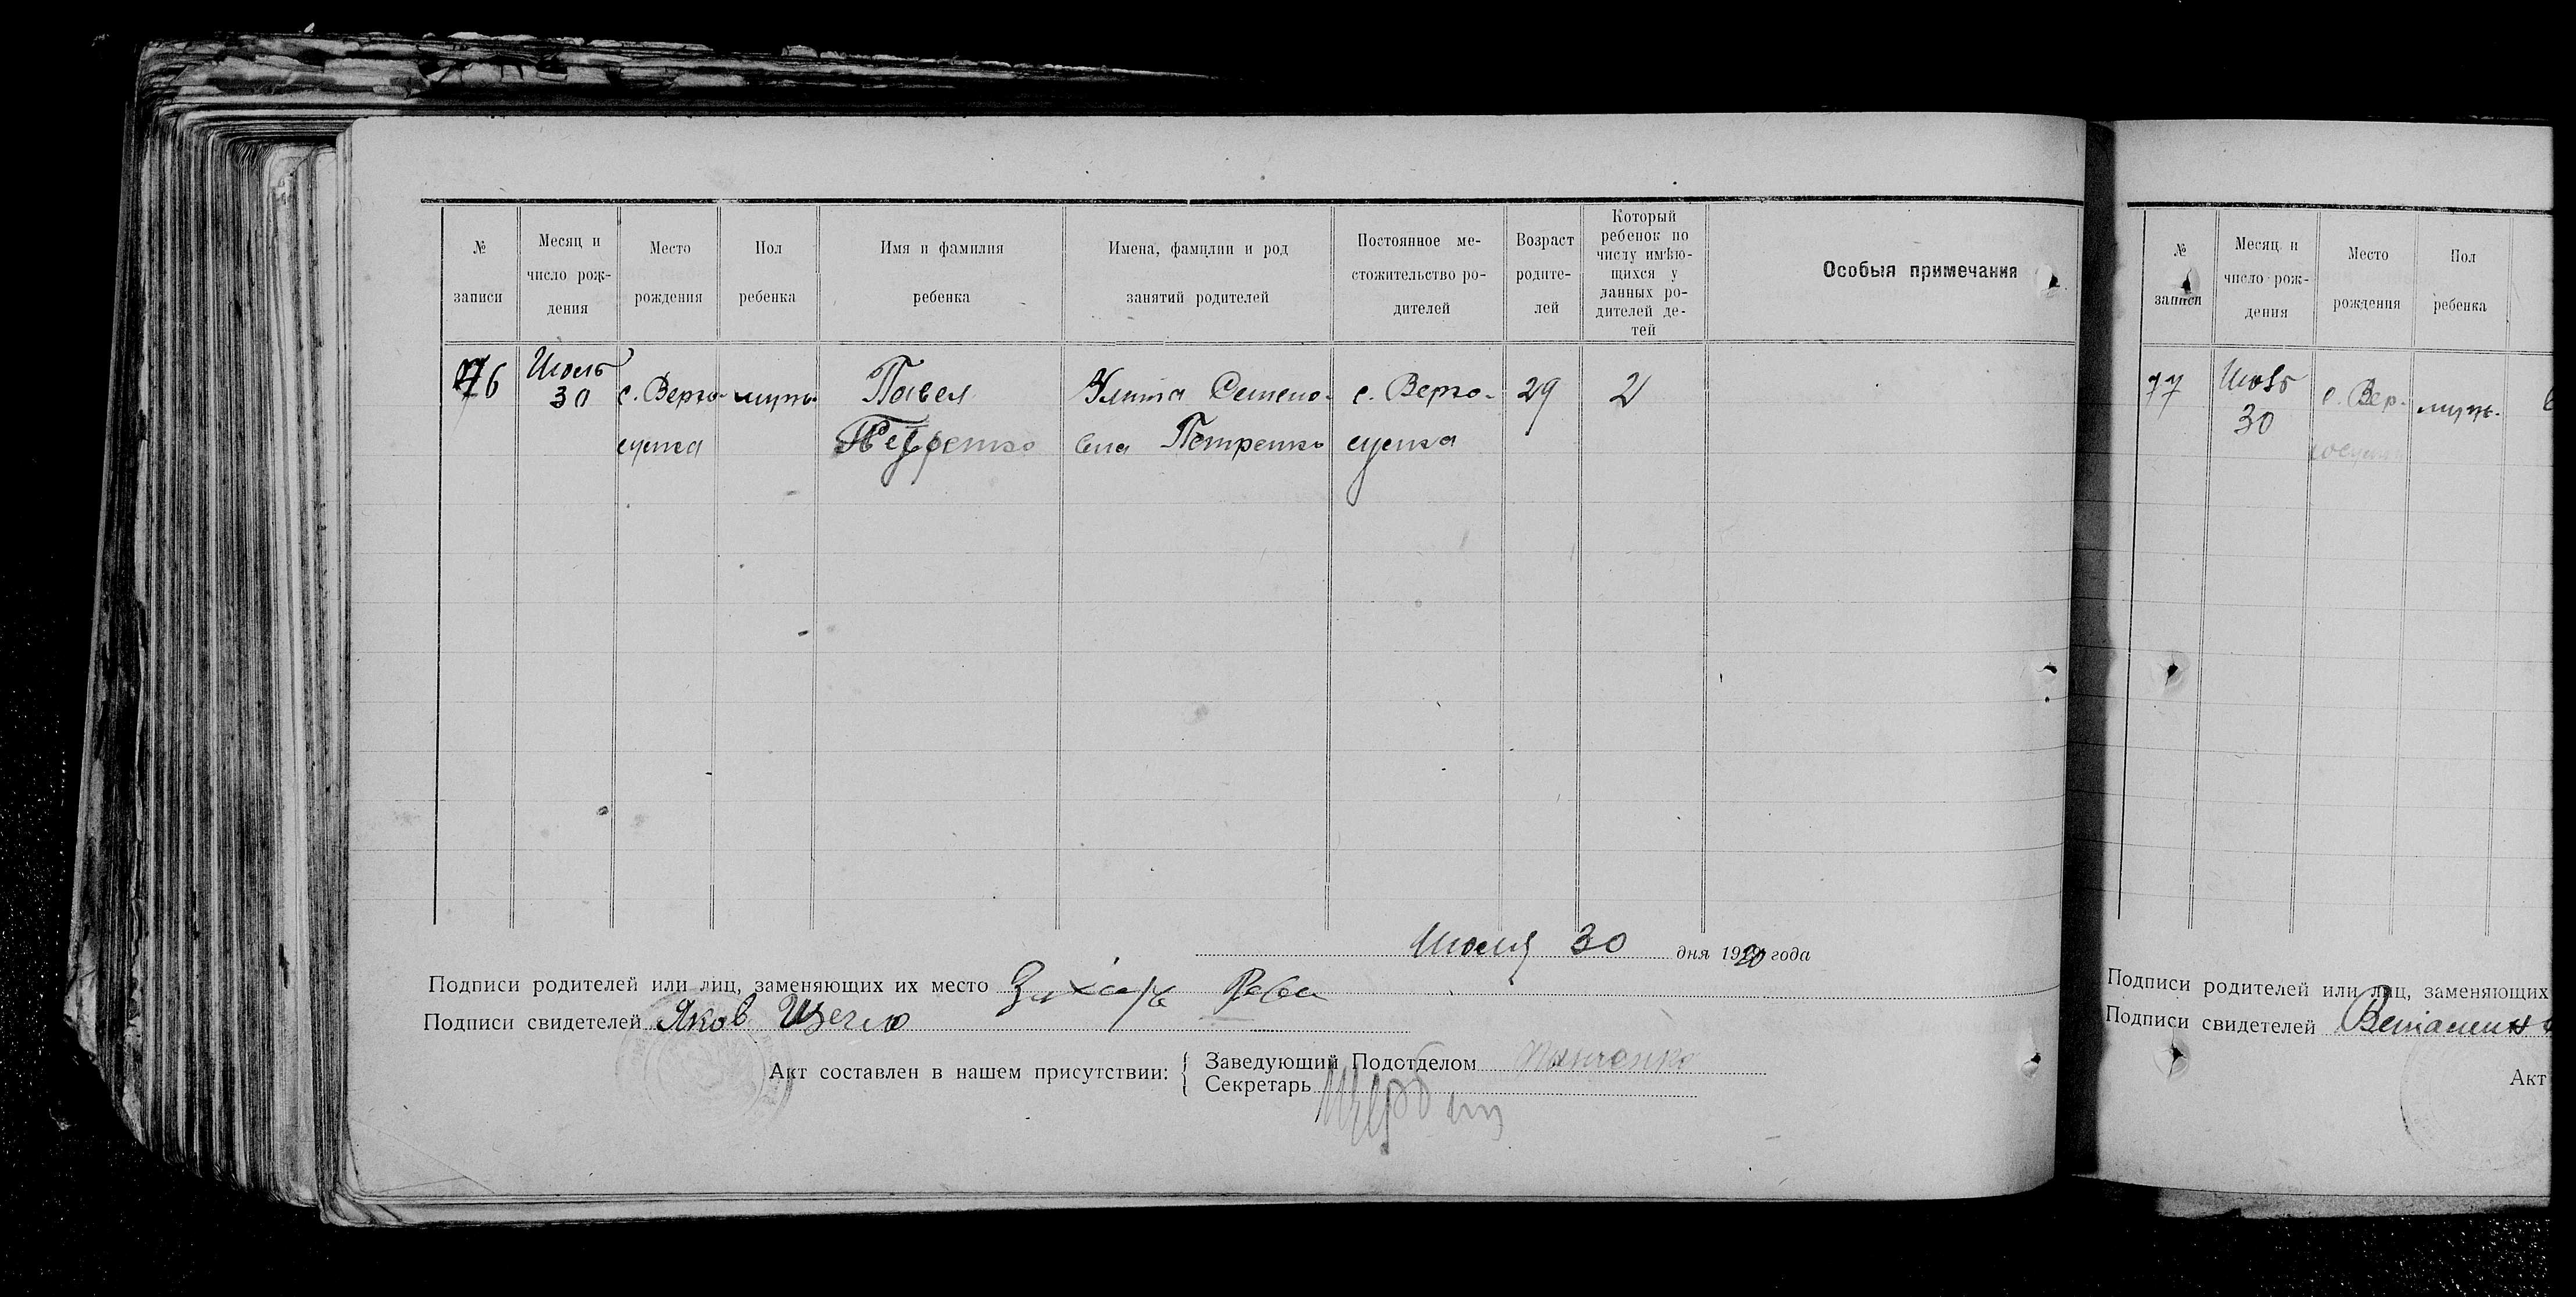 № записи
Месяц и число рождения
Место рождения
Пол ребенка
Имя и фамилия ребенка
Имена, фамилии и род занятий родителей
Постоянное местожительство родителей
Возраст родителей
Который ребенок по числу имѣющихся у данных родителей детей
Особыя примечания
76
Июль
30
с. Верхо-
сулка
мужс.
Павел
Петренко
Улита Семено-
вна Петренко
с. Верхо-
сулка
29
2
Июля 30 дня 1920 года
Подписи родителей или лиц, заменяющих их место Захарь Рева
Подписи свидетелей Яков
Акт составлен в нашем присутствии:
Заведующий Подотделом
Секретарь
№ записи
Месяц и число рождения
Место рождения
Пол ребенка
77
30
с. Вер-
мужс.
Подписи родителей или лиц, заменяющих
Подписи свидетелей
Акт